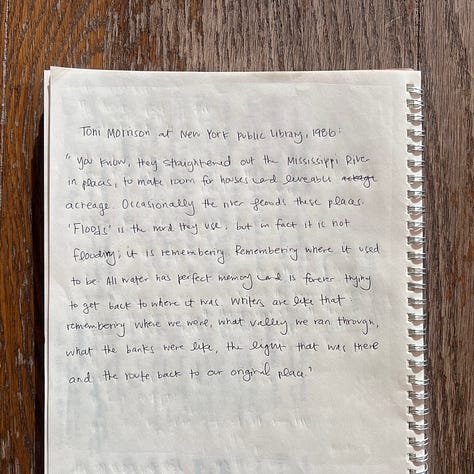 Toni Morrison at New York Public Library, 1986:
"You know, they straightened out the Mississippi River
in places, to make room for houses and liveable acreage
acreage. Occasionally the river floods these places.
'Floods' is the word they use, but in fact it is not
flooding; it is remembering. Remembering where it used
to be. All water has perfect memory and is forever trying
to get back to where it was. Writers are like that:
remembering where we were, what valley we ran through,
what the banks were like, the light that was there
and the route back to our original place."